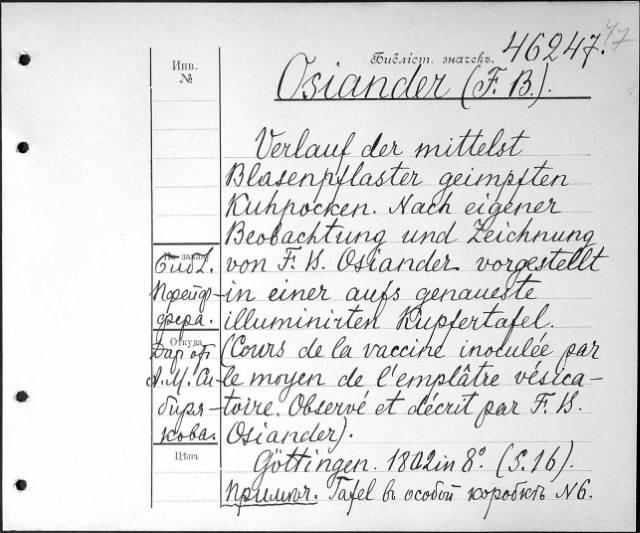 47
Библіот. значекъ. 46247.
Инв.
№
Osiander (F. B.).
Verlauf der mittelst
Blasenpflaster geimpften
Kuhpocken. Nach eigener
Beobachtung und Zeichnung
von F. B. Osiander vorgestellt
in einer aufs genaueste
illuminirten Kupfertafel.
(Cours de la vaccine inoculée par
le moyen de l'emplâtre vésica-
toire. Observé et décrit par F. B.
Osiander).
Göttingen. 1802 in 8°. (S. 16).
Примѣч. Tafel въ особой коробкѣ N6.
По заказу
Библ.
Пфейф-
фера.
Откуда
Даръ отъ
А. М. Си-
биря-
кова.
Цѣна